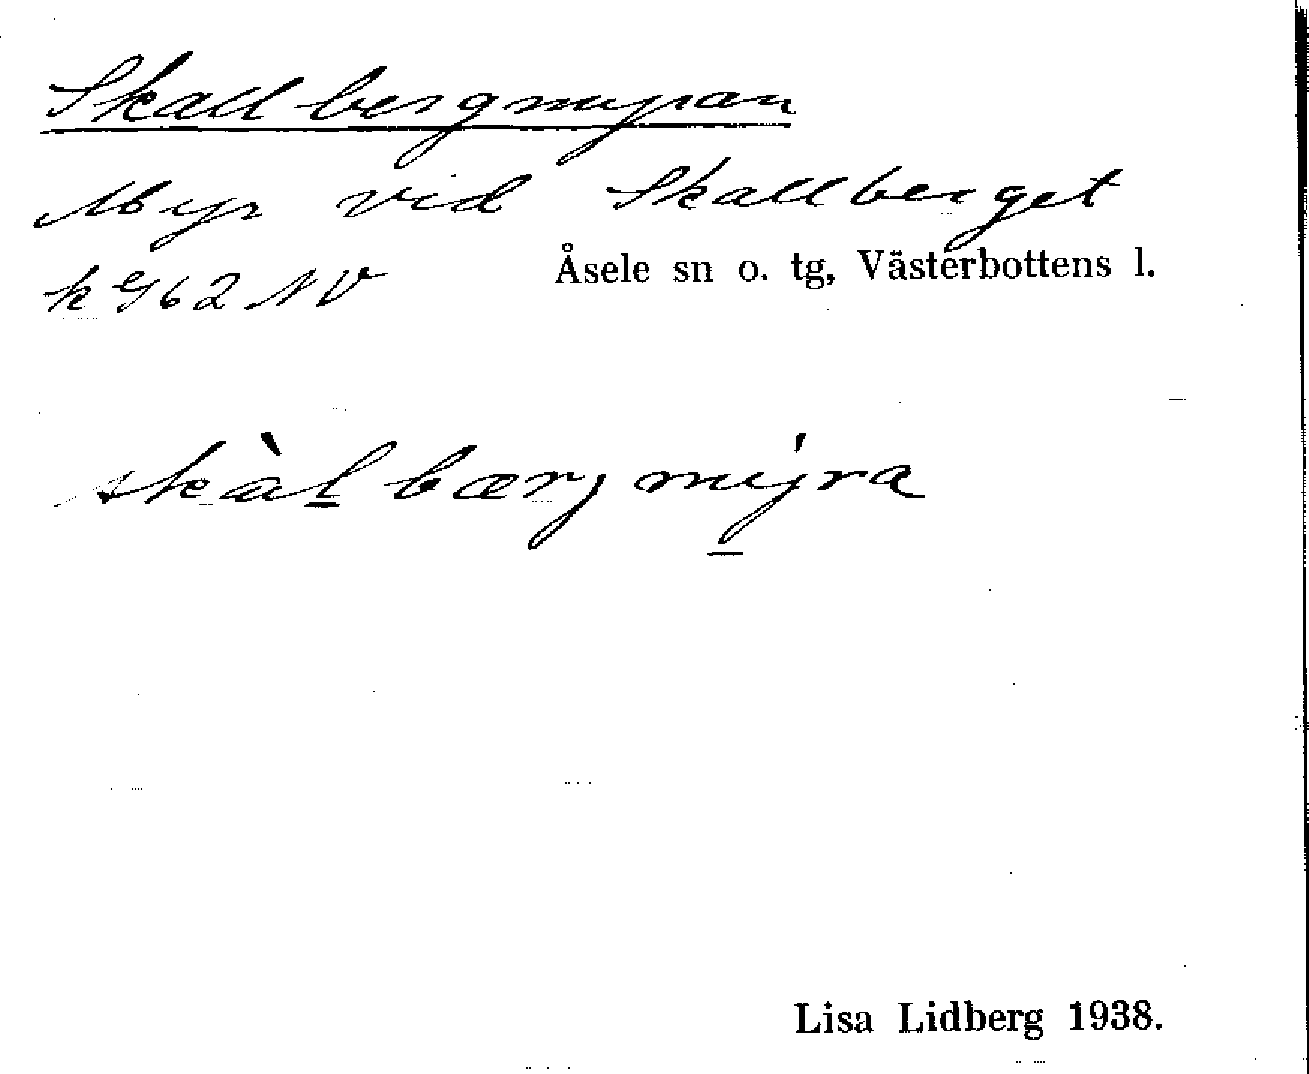 Skallbergmyran
Myr vid Skallberget
k G62 NV
Åsele sn o. tg, Västerbottens l.
skàl̲bærjmý̲ra
Lisa Lidberg 1938.